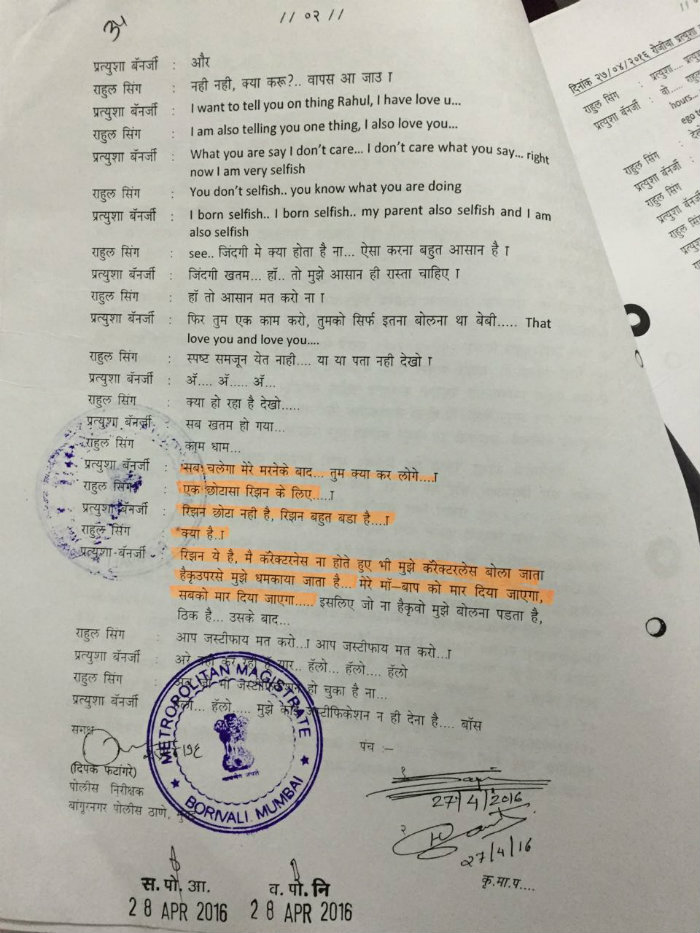 // ०२ //
प्रत्युशा बॅनर्जी : और
राहुल सिंग : नही नही, क्या करू?.. वापस आ जाउ ।
प्रत्युशा बॅनर्जी : I want to tell you on thing Rahul, I have love u...
राहुल सिंग : I am also telling you one thing, I also love you...
प्रत्युशा बॅनर्जी : What you are say I don't care... I don't care what you say... right
now I am very selfish
राहुल सिंग : You don't selfish.. you know what you are doing
प्रत्युशा बॅनर्जी : I born selfish.. I born selfish.. my parent also selfish and I am
also selfish
राहुल सिंग : see.. जिंदगी मे क्या होता है ना... ऐसा करना बहुत आसान है ।
प्रत्युशा बॅनर्जी : जिंदगी खतम... हॉ.. तो मुझे आसान ही रास्ता चाहिए ।
राहुल सिंग : हॉ तो आसान मत करो ना ।
प्रत्युशा बॅनर्जी : फिर तुम एक काम करो, तुमको सिर्फ इतना बोलना था बेबी..... That
love you and love you....
राहुल सिंग : स्पष्ट समजून येत नाही.... या या पता नही देखो ।
प्रत्युशा बॅनर्जी : ॲ.... ॲ..... ॲ...
राहुल सिंग : क्या हो रहा है देखो.....
प्रत्युशा बॅनर्जी : सब खतम हो गया...
राहुल सिंग : काम धाम...
प्रत्युशा बॅनर्जी : सब चलेगा मेरे मरनेके बाद... तुम क्या कर लोगे....।
राहुल सिंग : एक छोटासा रिझन के लिए....।
प्रत्युशा बॅनर्जी : रिझन छोटा नही है, रिझन बहुत बडा है....।
राहुल सिंग : क्या है..।
प्रत्युशा बॅनर्जी : रिझन ये है, मै कॅरेक्टरनेस ना होते हुए भी मुझे कॅरेक्टरलेस बोला जाता
हैकृउपरसे मुझे धमकाया जाता है... मेरे मॉ–बाप को मार दिया जाएगा,
सबको मार दिया जाएगा..... इसलिए जो ना हैकृवो मुझे बोलना पडता है,
ठिक है... उसके बाद...
राहुल सिंग : आप जस्टीफाय मत करो..। आप जस्टीफाय मत करो..।
प्रत्युशा बॅनर्जी : अरे कर यार.. हॅलो... हॅलो.... हॅलो
राहुल सिंग : हो चुका है ना...
प्रत्युशा बॅनर्जी : हॅलो.... मुझे न ही देना है.... बॉस
समक्ष
पंच :–
METROPOLITAN MAGISTRATE
BORIVALI, MUMBAI
(दिपक फटांगरे)
पोलीस निरीक्षक
बांगुरनगर पोलीस ठाणे,
१
27/4/2016
२
27/4/16
कृ.मा.प....
स. पो. आ.
28 APR 2016
व. पो. नि
28 APR 2016
दिनांक २७/०४/२०१६ रोजीचा
राहुल सिंग : प्रत्युशा....
प्रत्युशा बॅनर्जी :
hours...
राहुल सिंग
प्रत्युशा बॅनर्जी
राहुल सिंग